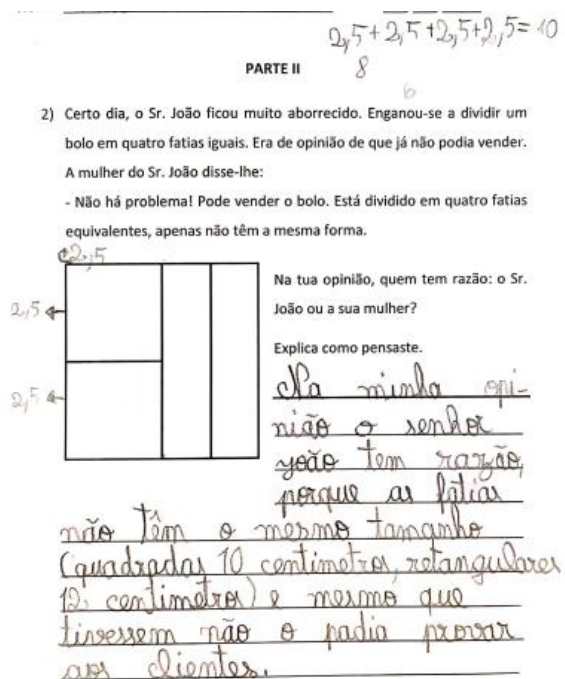 2,5+2,5+2,5+2,5=10
PARTE II
8
6
2) Certo dia, o Sr. João ficou muito aborrecido. Enganou-se a dividir um
bolo em quatro fatias iguais. Era de opinião de que já não podia vender.
A mulher do Sr. João disse-lhe:
- Não há problema! Pode vender o bolo. Está dividido em quatro fatias
equivalentes, apenas não têm a mesma forma.
2,5
Na tua opinião, quem tem razão: o Sr.
João ou a sua mulher?
2,5
Explica como pensaste.
2,5
Na minha opi-
nião o senhor
joão tem razão,
porque as fatias
não têm o mesmo tamanho
(quadradas 10 centimetros, retangulares
12, centimetros) e mesmo que
tivessem não o padia provar
aos clientes.